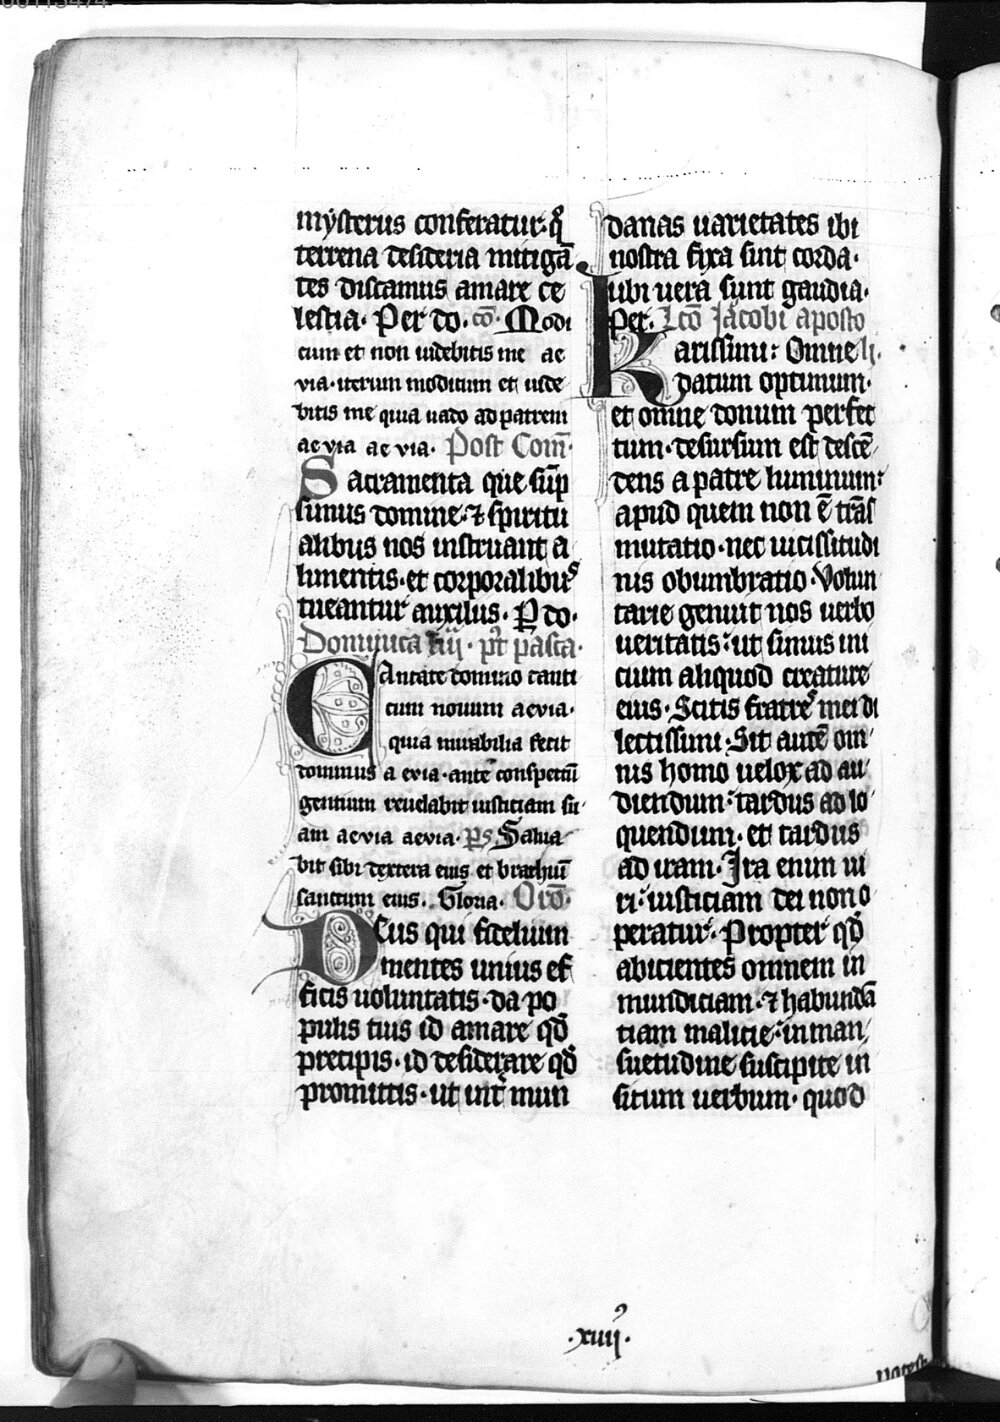 mÿsteriis conferatur·q̉
terrena desideria mitigā
tes discamus amare ce
lestia· Per do. cō· Modi
cum et non uidebitis me ae
via·iterum modicum et uide
bitis me quia uado ad patrem
ae via ae via. Post Com̄·
Sacramenta que sūp
simus domine·⁊ spiritu
alibus nos instruant a
limentis·et corporalibus
tueantur auxiliis. P̲ do·
Dominica iiij· pt̉ pasca·
Cantate domino canti
cum nouum aevia·
quia mirabilia fecit
dominus a evia·ante conspectū
gentium reuelabit iusticiam su
am aevia aevia· p̄s Salua
bit sibi dextera eius et brachiū
sanctum eius. Gloria· Orō·
Deus qui fidelium
mentes unius ef
ficis uoluntatis·da po
pulis tuis id amare qđ
precipis·id desiderare qđ
promittis·ut int̉ mun
danas uarietates ibi
nostra fixa sint corda·
ubi uera sunt gaudia·
Per. Lc̄o Jacobi aposto
Karissimi: Omne li.
datum optimum·
et omne donum perfec
tum·desursum est descē
dens a patre luminum:
apud quem non ē trās
mutatio·nec uicissitudi
nis obumbratio·Volun
tarie genuit nos uerbo
ueritatis:ut simus ini
cium aliquod creature
eius·Scitis fratres mei di
lectissimi·Sit autē om
nis homo uelox ad au
diendum:tardus ad lo
quendum·et tardus
ad iram·Ira enim ui
ri:iusticiam dei non o
peratur·Propter qđ
abicientes omnem in
mundiciam·⁊ habundā
tiam malicie:in man
suetudine suscipite in
situm uerbum·quod
.xiiij.